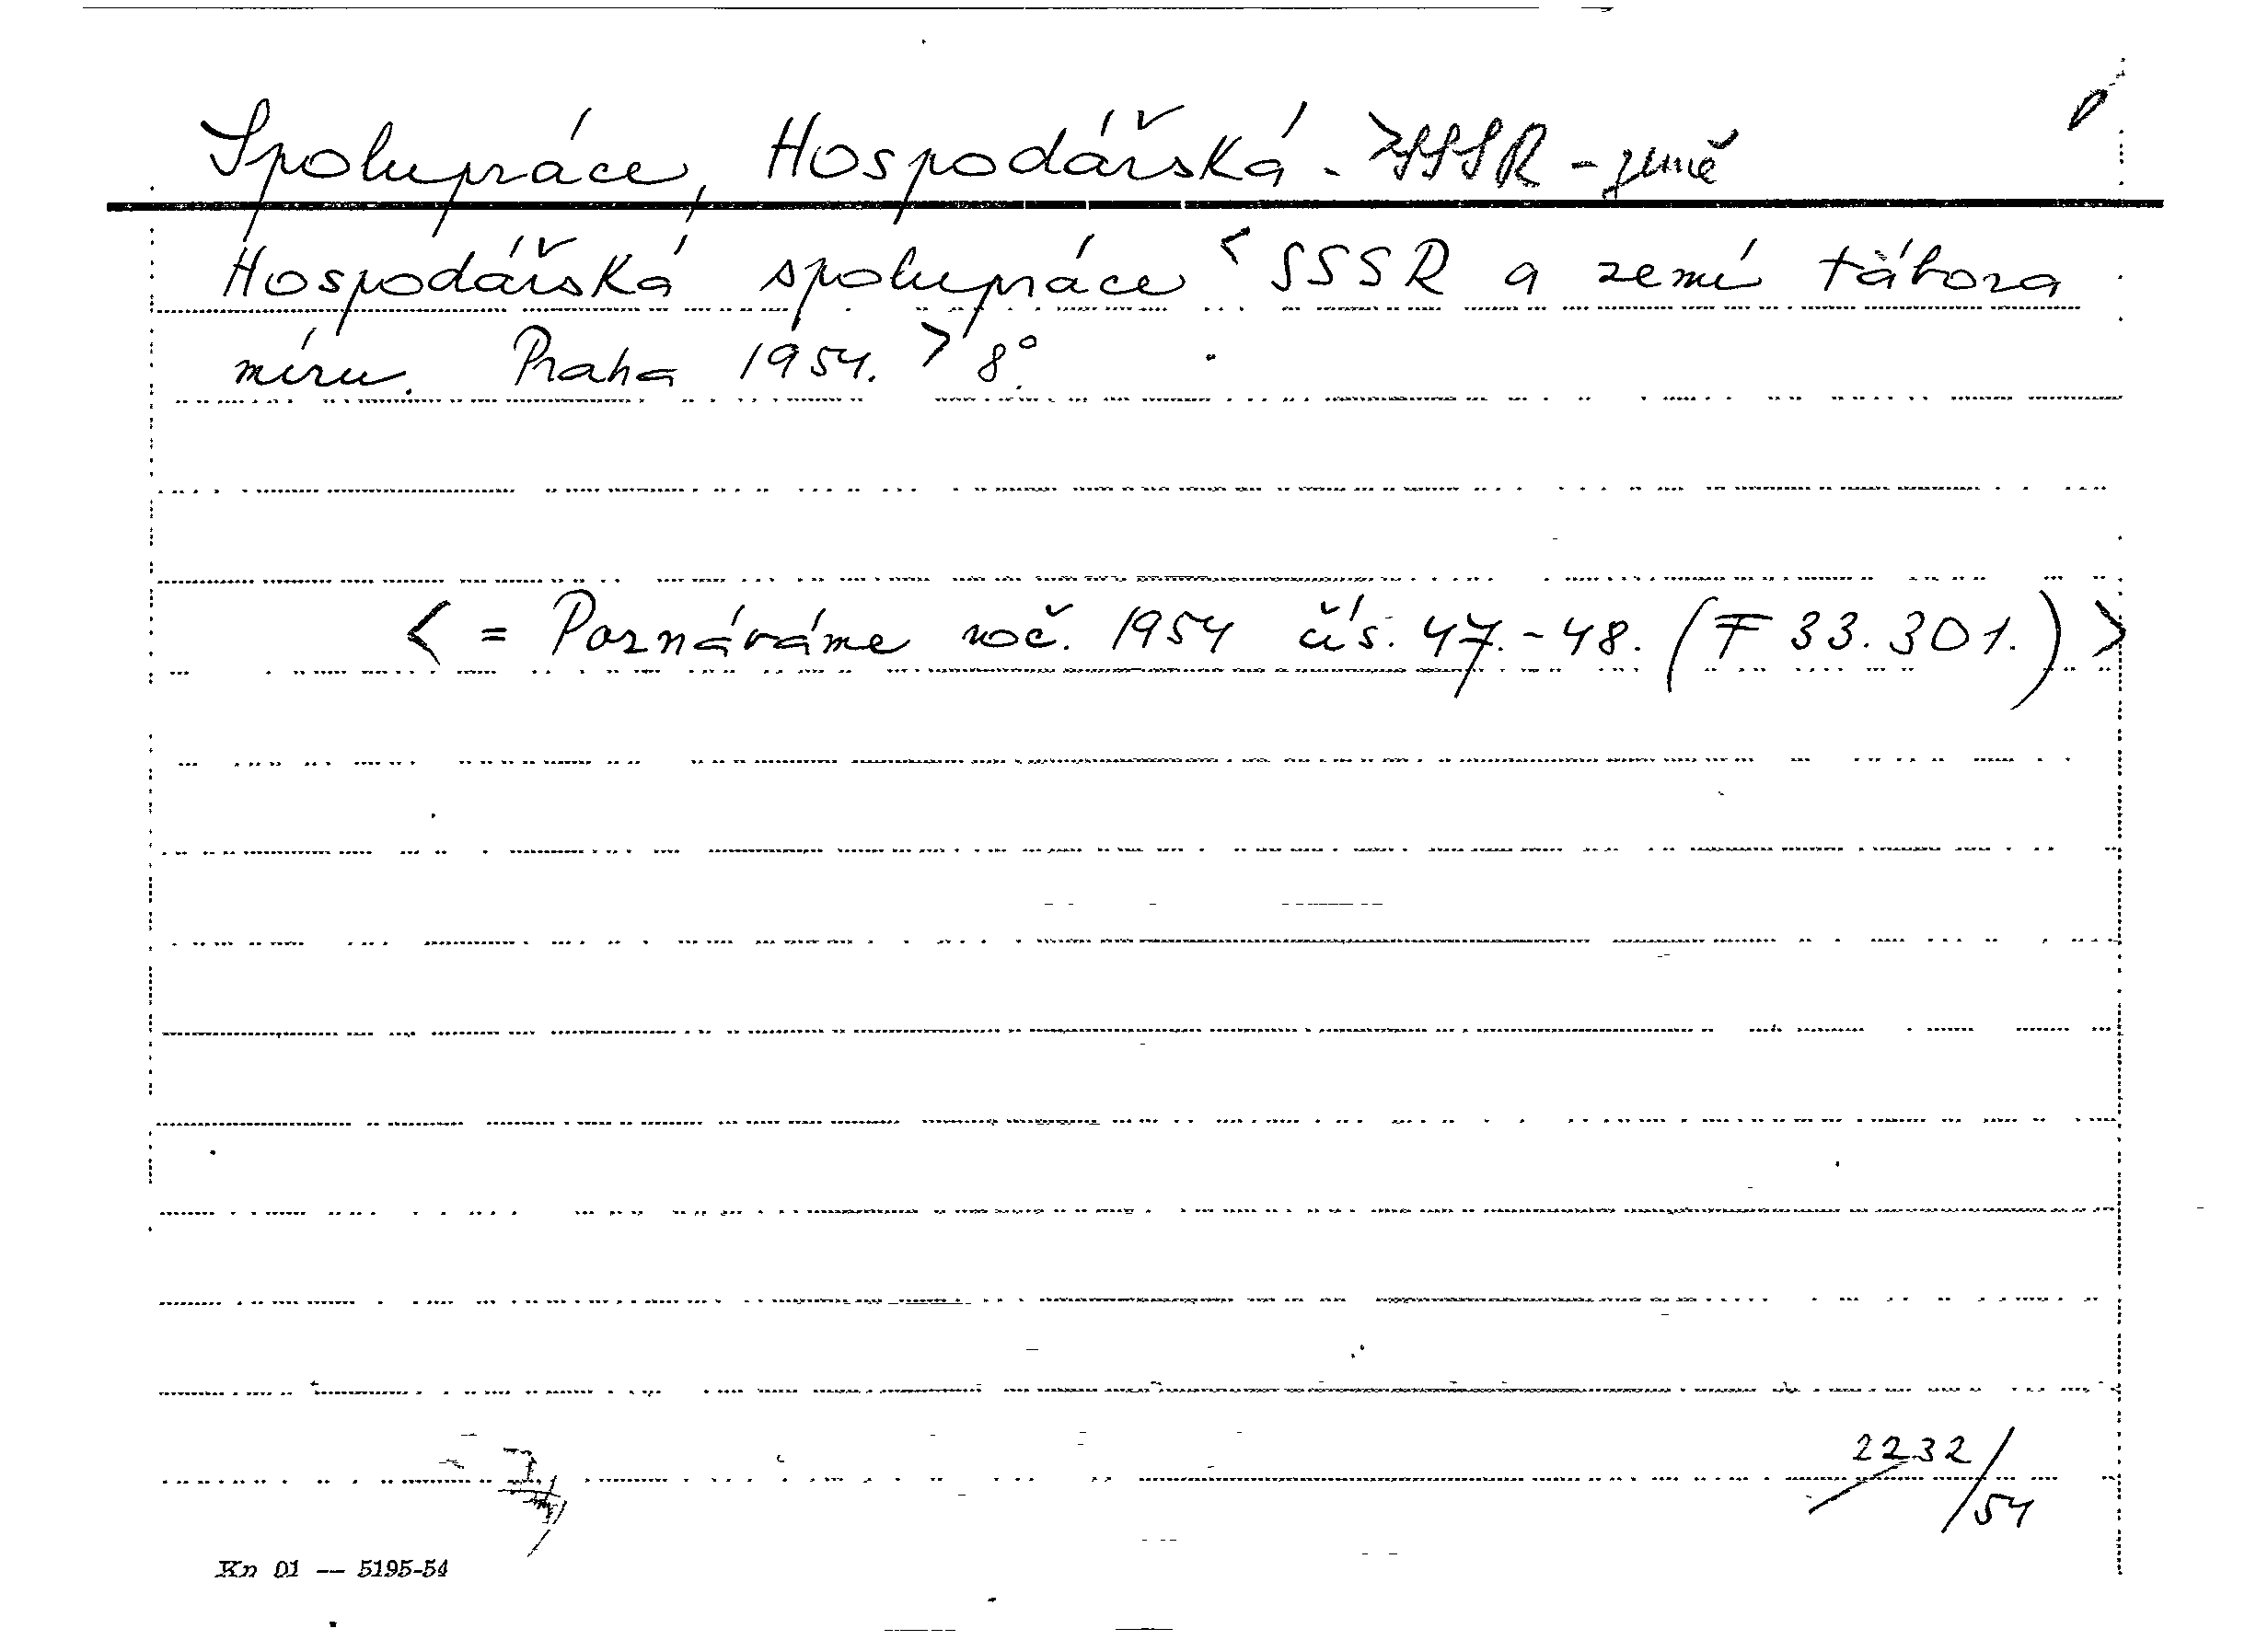 Spolupráce, Hospodářská - >SSSR - země
Hospodářská spolupráce < SSSR a zemí tábora
míru. Praha 1954. > 8°.
< = Poznáváme roč. 1954 čís. 47.-48. (F 33.301.) >
2232/54
Kn 01 — 5195-54